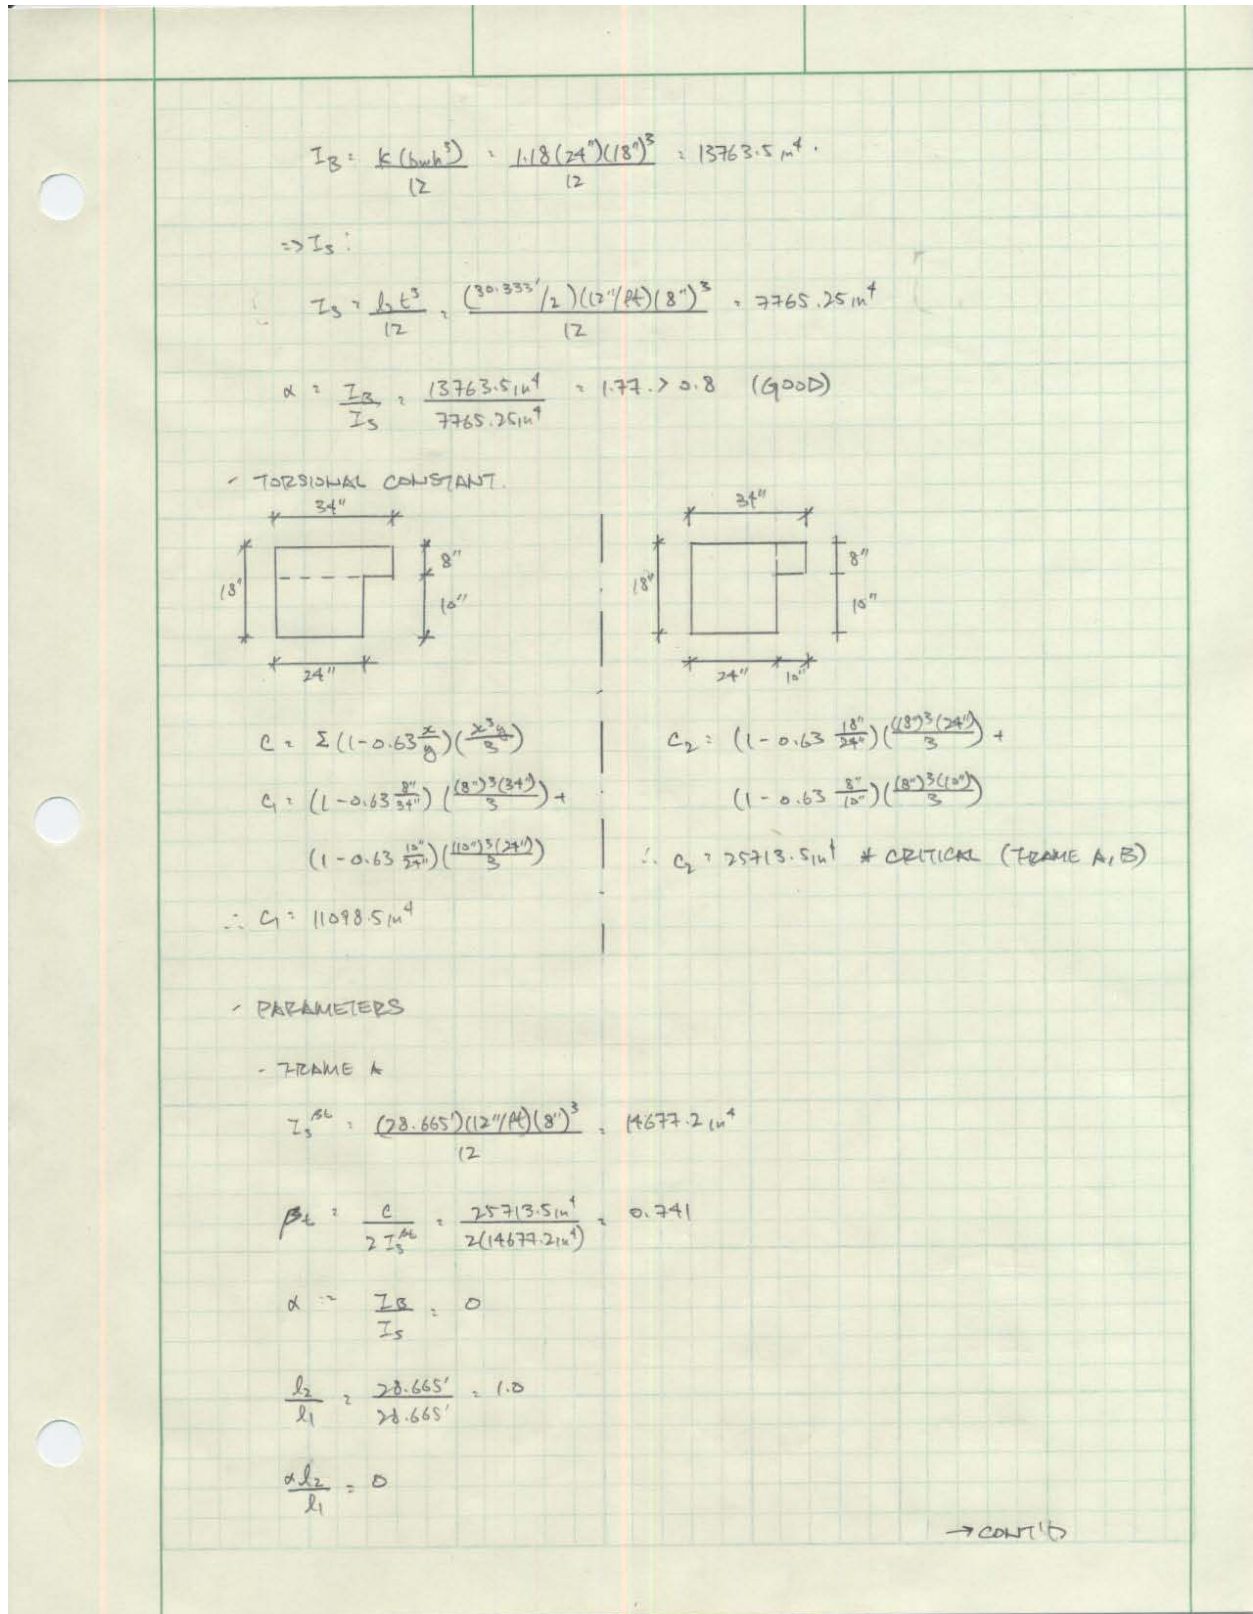 I_B = K(bwh³)/12 = 1.18(24")(18")³/12 = 13763.5 in⁴.
=> I_S:
I_S = l₂t³/12 = (30.333'/2)(12"/ft)(8")³/12 = 7765.25 in⁴
α = I_B/I_S = 13763.5 in⁴/7765.25 in⁴ = 1.77. > 0.8 (GOOD)
- TORSIONAL CONSTANT.
34"
18"
8"
10"
24"
34"
18"
8"
10"
24" 10"
C = Σ(1-0.63 x/y)(x³y/3)
C₁ = (1-0.63 8"/34")((8")³(34")/3) +
(1-0.63 10"/24")((10")³(24")/3)
∴ C₁ = 11098.5 in⁴
C₂ = (1-0.63 18"/24")((18")³(24")/3) +
(1-0.63 8"/10")((8")³(10")/3)
∴ C₂ = 25713.5 in⁴ * CRITICAL (FRAME A, B)
- PARAMETERS
- FRAME A
I_S^βt = (28.665')(12"/ft)(8")³/12 = 14677.2 in⁴
βt = C/2I_S^βt = 25713.5 in⁴/2(14677.2 in⁴) = 0.741
α = I_B/I_S = 0
l₂/l₁ = 28.665'/28.665' = 1.0
αl₂/l₁ = 0
→ CONT'D